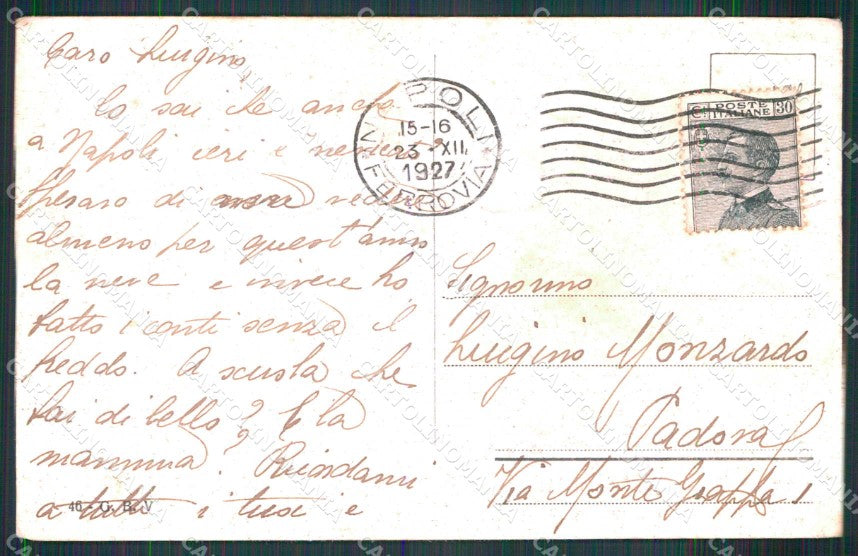 Caro Luigino,
lo sai che anche
a Napoli ieri e
speravo di non vedere
almeno per quest'anno
la neve e invece ho
fatto i conti senza il
freddo. A scuola che
fai di bello? E la
mamma? Ricordami
a tutti i tuoi e
46 - G. B. V
NAPOLI
15-16
23 · XII
1927
FERROVIA
POSTE
ITALIANE
Ct 30
Signorino
Luigino Monzardo
Padova
Via Monte Grappa 1
CARTOLINOMANIA